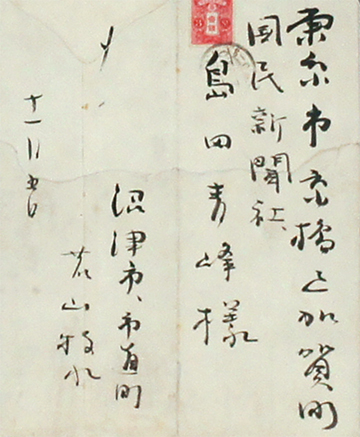 東京市京橋区加賀町
国民新聞社、
島田青峰様
沼津市、市道町
若山牧水
十一月五日